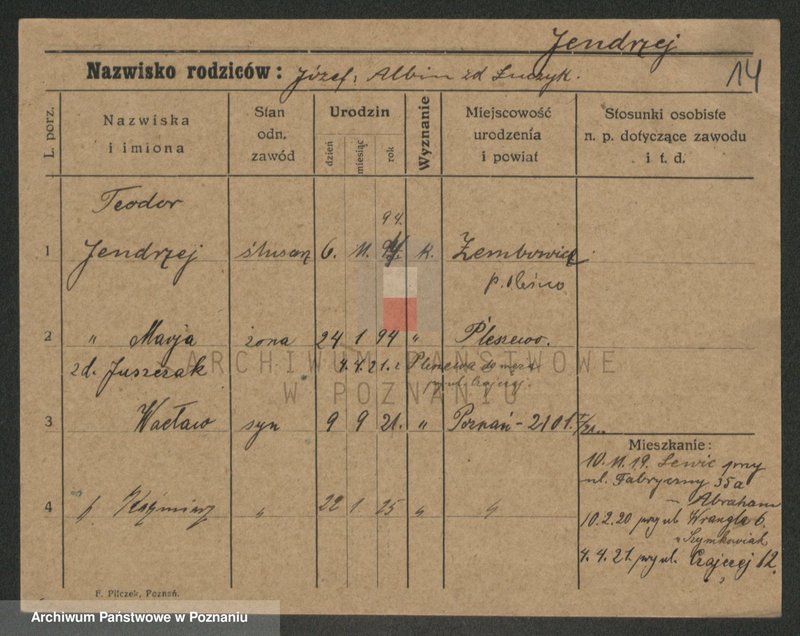 Jendrzej
Nazwisko rodziców: Józef, Albin zd
14
L. porz.
Nazwiska
i imiona
Stan
odn.
zawód
Urodzin
dzień
miesiąc
rok
Wyznanie
Miejscowość
urodzenia
i powiat
Stosunki osobiste
n. p. dotyczące zawodu
i t. d.
Teodor
94.
1 Jendrzej 6. 11. k.
p. Olesno
2 " Marja żona 24 1 94 " Pleszewo.
zd. Juszczak 4.4.21. z do męża
ARCHIWUM PAŃSTWOWE
W POZNANIU
3 Wacław syn 9 9 21. " Poznań
Mieszkanie:
10.11.19. przy
ul. Fabryczny 35a
- Abraham
4 Kaźmierz " 22 1 25 " "
10.2.20 przy ul Wrangla 6.
" Szymkowiak
4.4.21. przy ul. 12.
F. Pilczek, Poznań.
Archiwum Państwowe w Poznaniu